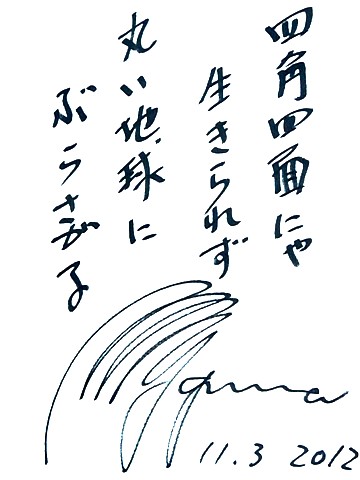 四角四面にゃ
生きられず
丸い地球に
ぶらさがる
11.3 2012